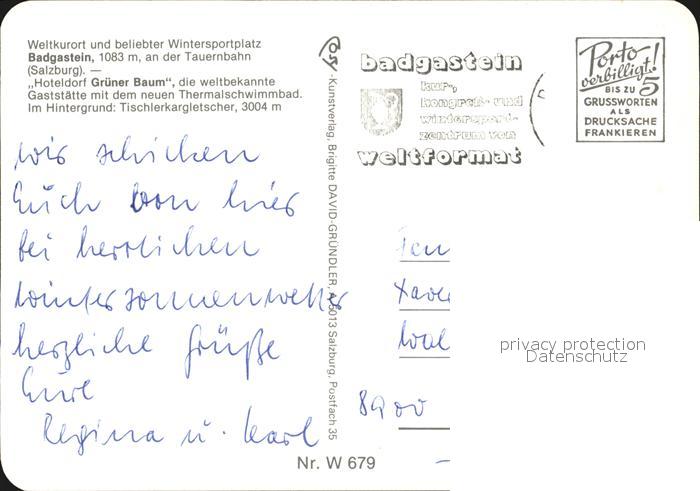 Weltkurort und beliebter Wintersportplatz
Badgastein, 1083 m, an der Tauernbahn
(Salzburg). —
„Hoteldorf Grüner Baum“, die weltbekannte
Gaststätte mit dem neuen Thermalschwimmbad.
Im Hintergrund: Tischlerkargletscher, 3004 m
wir schicken
Euch von hier
bei herrlichen
Wintersonnenwetter
herzliche Grüße
Eure
Regina u. Karl
Cosy-Kunstverlag, Brigitte DAVID-GRÜNDLER, A-5013 Salzburg, Postfach 35
Nr. W 679
badgastein
kur-,
kongreß- und
wintersport-
zentrum von
weltformat
Porto
verbilligt!
BIS ZU 5
GRUSSWORTEN
ALS
DRUCKSACHE
FRANKIEREN
Xaver
8900
privacy protection
Datenschutz